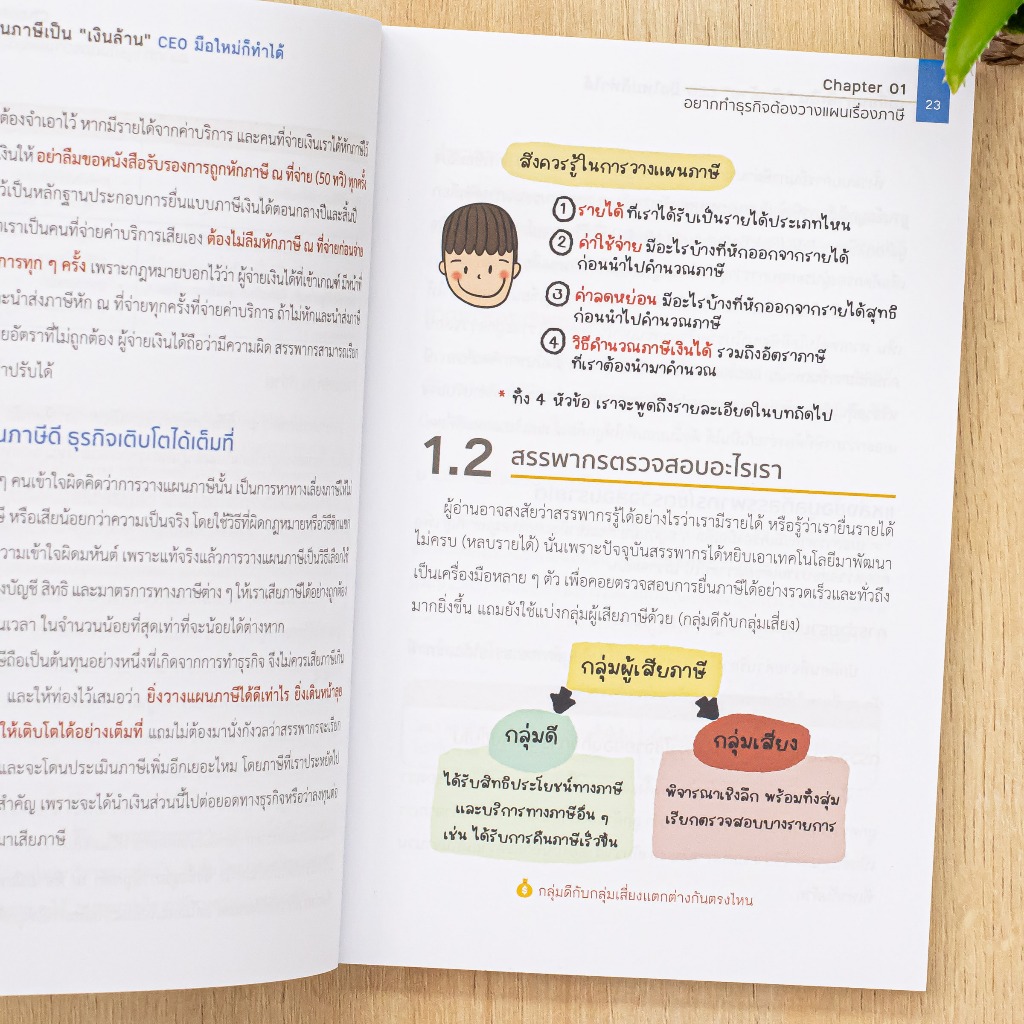 นภาษีเป็น "เงินล้าน" CEO มือใหม่ก็ทำได้
ต้องจำเอาไว้ หากมีรายได้จากค่าบริการ และคนที่จ่ายเงินเราได้หักภาษีไว้
เงินให้ อย่าลืมขอหนังสือรับรองการถูกหักภาษี ณ ที่จ่าย (50 ทวิ) ทุกครั้ง
ว้เป็นหลักฐานประกอบการยื่นแบบภาษีเงินได้ตอนกลางปีและสิ้นปี
าเราเป็นคนที่จ่ายค่าบริการเสียเอง ต้องไม่ลืมหักภาษี ณ ที่จ่ายก่อนจ่าย
การทุก ๆ ครั้ง เพราะกฎหมายบอกไว้ว่า ผู้จ่ายเงินได้ที่เข้าเกณฑ์ มีหน้าที่
ะนำส่งภาษีหัก ณ ที่จ่ายทุกครั้งที่จ่ายค่าบริการ ถ้าไม่หักและนำส่งภาษี
ยอัตราที่ไม่ถูกต้อง ผู้จ่ายเงินได้ถือว่ามีความผิด สรรพากรสามารถเรียก
าปรับได้
นภาษีดี ธุรกิจเติบโตได้เต็มที่
ๆ คนเข้าใจผิดคิดว่าการวางแผนภาษีนั้น เป็นการหาทางเลี่ยงภาษีให้ไม่
ี หรือเสียน้อยกว่าความเป็นจริง โดยใช้วิธีที่ผิดกฎหมายหรือวิธีซิกแซก
ความเข้าใจผิดมหันต์ เพราะแท้จริงแล้วการวางแผนภาษีเป็นวิธีเลือกใช้
งบัญชี สิทธิ และมาตรการทางภาษีต่าง ๆ ให้เราเสียภาษีได้อย่างถูกต้อง
นเวลา ในจำนวนน้อยที่สุดเท่าที่จะน้อยได้ต่างหาก
ษีถือเป็นต้นทุนอย่างหนึ่งที่เกิดจากการทำธุรกิจ จึงไม่ควรเสียภาษีเกิน
และให้ท่องไว้เสมอว่า ยิ่งวางแผนภาษีได้ดีเท่าไร ยิ่งเดินหน้าลุย
ให้เติบโตได้อย่างเต็มที่ แถมไม่ต้องมานั่งกังวลว่าสรรพากรจะเรียก
และจะโดนประเมินภาษีเพิ่มอีกเยอะไหม โดยภาษีที่เราประหยัดไป
สำคัญ เพราะจะได้นำเงินส่วนนี้ไปต่อยอดทางธุรกิจหรือว่าลงทุนต่อ
มาเสียภาษี
Chapter 01
อยากทำธุรกิจต้องวางแผนเรื่องภาษี
23
สิ่งควรรู้ในการวางแผนภาษี
1 รายได้ ที่เราได้รับเป็นรายได้ประเภทไหน
2 ค่าใช้จ่าย มีอะไรบ้างที่หักออกจากรายได้
ก่อนนำไปคำนวณภาษี
3 ค่าลดหย่อน มีอะไรบ้างที่หักออกจากรายได้สุทธิ
ก่อนนำไปคำนวณภาษี
4 วิธีคำนวณภาษีเงินได้ รวมถึงอัตราภาษี
ที่เราต้องนำมาคำนวณ
* ทั้ง 4 หัวข้อ เราจะพูดถึงรายละเอียดในบทถัดไป
1.2 สรรพากรตรวจสอบอะไรเรา
ผู้อ่านอาจสงสัยว่าสรรพากรรู้ได้อย่างไรว่าเรามีรายได้ หรือรู้ว่าเรายื่นรายได้
ไม่ครบ (หลบรายได้) นั่นเพราะปัจจุบันสรรพากรได้หยิบเอาเทคโนโลยีมาพัฒนา
เป็นเครื่องมือหลาย ๆ ตัว เพื่อคอยตรวจสอบการยื่นภาษีได้อย่างรวดเร็วและทั่วถึง
มากยิ่งขึ้น แถมยังใช้แบ่งกลุ่มผู้เสียภาษีด้วย (กลุ่มดีกับกลุ่มเสี่ยง)
กลุ่มผู้เสียภาษี
กลุ่มดี
ได้รับสิทธิประโยชน์ทางภาษี
และบริการทางภาษีอื่น ๆ
เช่น ได้รับการคืนภาษีเร็วขึ้น
กลุ่มเสี่ยง
พิจารณาเชิงลึก พร้อมทั้งสุ่ม
เรียกตรวจสอบบางรายการ
กลุ่มดีกับกลุ่มเสี่ยงแตกต่างกันตรงไหน